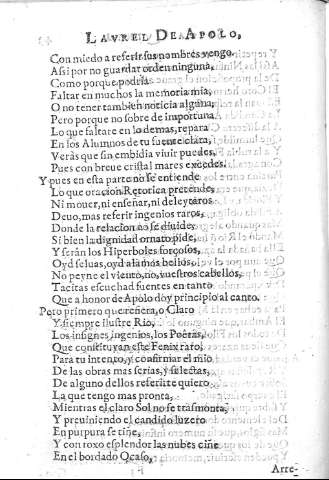 LAVREL DE APOLO,
Con miedo a referir sus nombres vengo.
Assi por no guardar orden ninguna,
Como porque podria
Faltar en muchos la memoria mia,
O no tener tambien noticia alguna;
Pero porque no sobre de importuna
Lo que faltare en lo demas, repara
En los Alumnos de tu fuente clara,
Veràs que sin embidia viuir puedes,
Pues con breue cristal mares excedes.
Y pues en esta parte no se entiende
Lo que oracion Retorica pretende,
Ni mouer, ni enseñar, ni deleytaros
Deuo, mas referir ingenios raros,
Donde la relacion no se diuide,
Si bien la dignidad ornato pide,
Y seràn los Hiperboles forçosos,
Oyd seluas, oyd alamos bellos,
No peyne el viento, no, vuestros cabellos,
Tacitas escuchad fuentes en tanto
Que a honor de Apolo doy principio al canto.
Pero primero que refiera, o Claro
Y siempre ilustre Rio,
Los insignes ingenios, los Poëtas,
Que constituyan este Fenix raro,
Para tu intento, y confirmar el mio,
De las obras mas serias, y selectas,
De alguno dellos referirte quiero
La que tengo mas pronta,
Mientras el claro Sol no se trasmonta,
Y preuiniendo el candido luzero
En purpura se tiñe,
Y con roxo esplendor las nubes ciñe
En el bordado Ocaso,
Arre-